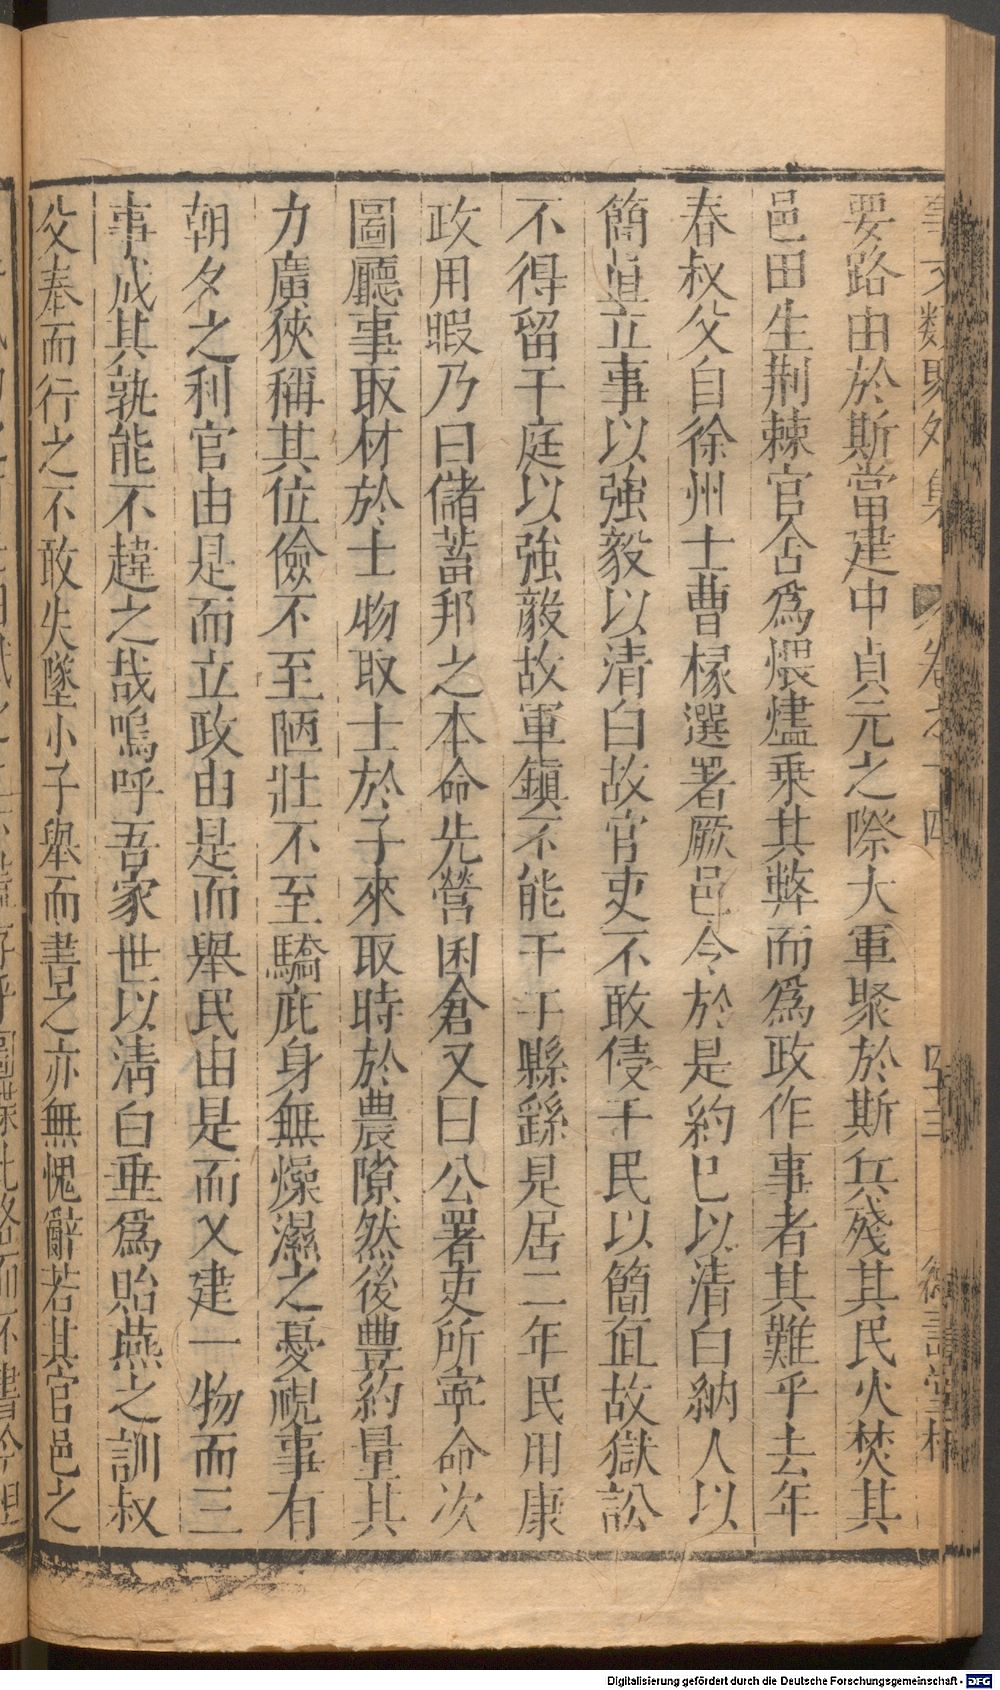 事文類聚外集 卷之十四 四十三 德壽堂梓
要路由於斯當建中貞元之際大軍聚於斯兵殘其民火焚其
邑田生荆棘官舍爲煨燼乗其弊而爲政作事者其難乎去年
春叔父自徐州士曹掾選署厥邑令於是約巳以清白納人以
簡直立事以強毅以清白故官吏不敢侵于民以簡直故獄訟
不得留于庭以強毅故軍鎮不能干于縣繇是居二年民用康
政用暇乃曰儲蓄邦之本命先營囷倉又曰公署吏所寧命次
圖廳事取材於土物取土於子來取時於農隙然後豐約量其
力廣狹稱其位儉不至陋壯不至驕庇身無燥濕之憂視事有
朝夕之利官由是而立政由是而舉民由是而乂建一物而三
事成其孰能不韙之哉嗚呼吾家世以清白垂爲貽燕之訓叔
父奉而行之不敢失墜小子舉而書之亦無愧辭若其官邑之
Digitalisierung gefördert durch die Deutsche Forschungsgemeinschaft - DFG